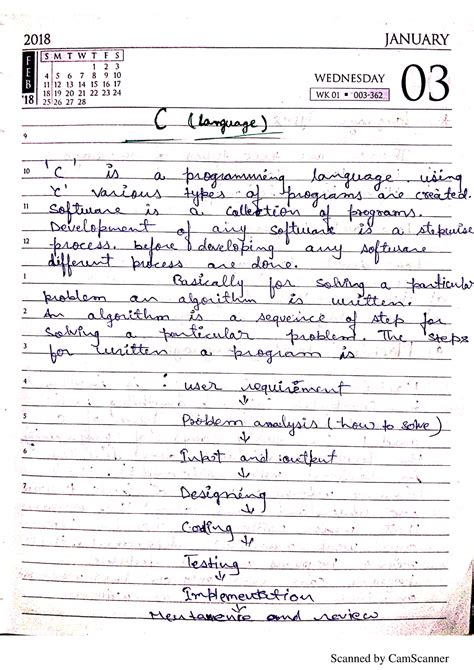 2018
JANUARY
FEB '18
S M T W T F S
1 2 3
4 5 6 7 8 9 10
11 12 13 14 15 16 17
18 19 20 21 22 23 24
25 26 27 28
WEDNESDAY
WK 01 • 003-362
03
C (Language)
9
10 'C' is a programming language. using
'C' various types of programs are created.
11 Software is a collection of programs.
Development of any software is a stepwise
12 process. before developing any software
different process are done.
1 Basically for solving a particular
problem an algorithm is written.
2 An algorithm is a sequence of step for
solving a particular problem. The steps
3 for written a program is
4 user requirement
↓
5 Problem analysis (how to solve)
↓
6 Input and output
↓
7 Designing
↓
Coding
↓
Testing
↓
Implementation
↓
Mentanence and review
Scanned by CamScanner